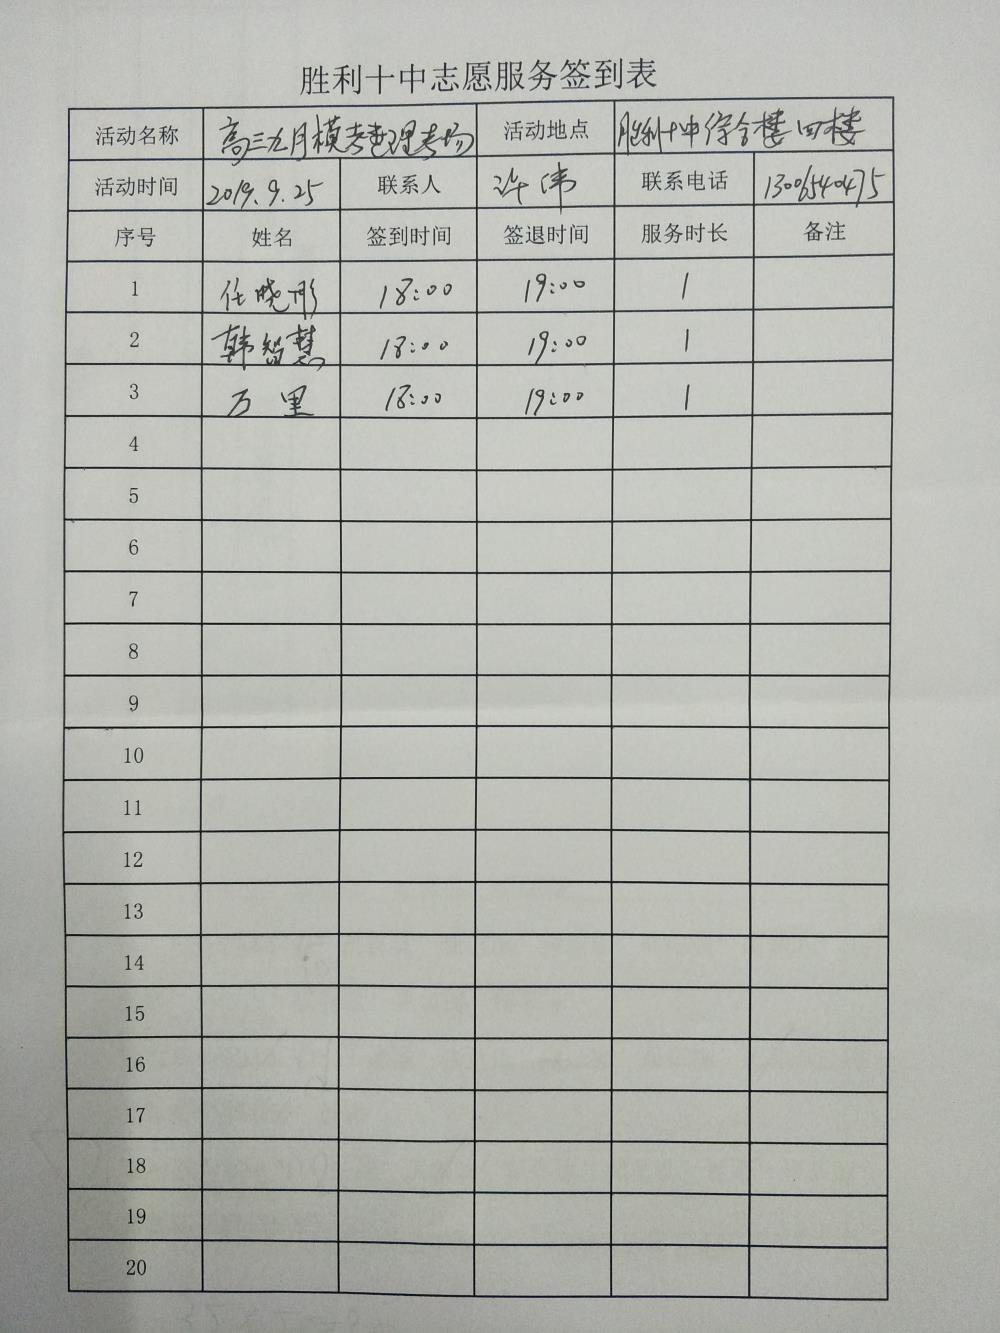 胜利十中志愿服务签到表
活动名称 高三九月模考整理考场 活动地点 胜利十中综合楼四楼
活动时间 2019.9.25 联系人 许伟 联系电话 13006540475
序号 姓名 签到时间 签退时间 服务时长 备注
1 任晓彤 18:00 19:00 1
2 韩智慧 18:00 19:00 1
3 万里 18:00 19:00 1
4
5
6
7
8
9
10
11
12
13
14
15
16
17
18
19
20